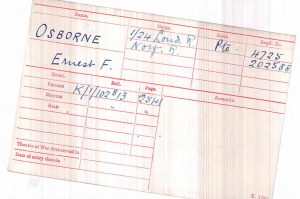 Name. Corps. Rank. Regtl. No.
OSBORNE 1/24 Lond. R Pte 4725
Ernest F. Norf. R. 202586
Medal. Roll. Page.
Victory K/1/102B13 2541 Remarks.
British " "
Star
Theatre of War first served in
Date of entry therein